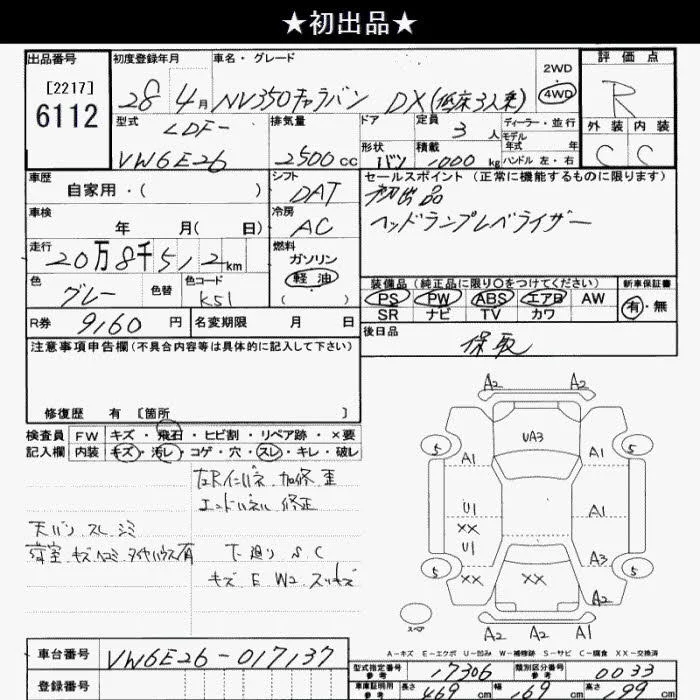 ★初出品★
出品番号
[2217]
6112
初度登録年月
28年4月
車名・グレード
NV350キャラバン DX(低床3人乗)
2WD
4WD
評価点
R
外装 内装
C C
型式
LDF-
VW6E26
排気量
2500cc
ドア
形状
バン
定員
3人
積載
1000kg
ディーラー・並行
モデル
年式 年
ハンドル 左・右
車歴
自家用・( )
シフト
DAT
セールスポイント(正常に機能するものに限ります)
初出品
ヘッドランプレベライザー
車検
年 月( 日)
冷房
AC
走行
20万8千512km
燃料
ガソリン
軽油
( )
色
グレー
色替
色コード
K51
装備品(純正品に限り○をつけてください)
PS PW ABS エアB AW
SR ナビ TV カワ
新車保証書
有・無
R券
9160円
名変期限 月 日
後日品
保取
注意事項申告欄(不具合内容等は具体的に記入して下さい)
修復歴 有 [箇所 ]
検査員
記入欄
FW キズ・飛石・ヒビ割・リペア跡・×要
内装 キズ・汚レ・コゲ・穴・スレ・キレ・破レ
左Rインパネ 加修歪
エンドパネル 修正
天バリ スレ シミ
荷室 キズ ヘコミ タイヤハウス有
下廻り S C
キズ E W2 スリキズ
A2 A2
5 5
UA3
A1 A1
U1 A1
XX
U1 A3
5 5
XX XX A2
スペア
A2 A2 A2
A-キズ E-エクボ U-凹み W-補修跡 S-サビ C-腐食 XX-交換済
車台番号
VW6E26-017137
登録番号
型式指定番号
参考
17306
類別区分番号
参考
0033
車庫証明用
参考
長さ 469cm
幅 169cm
高さ 199cm